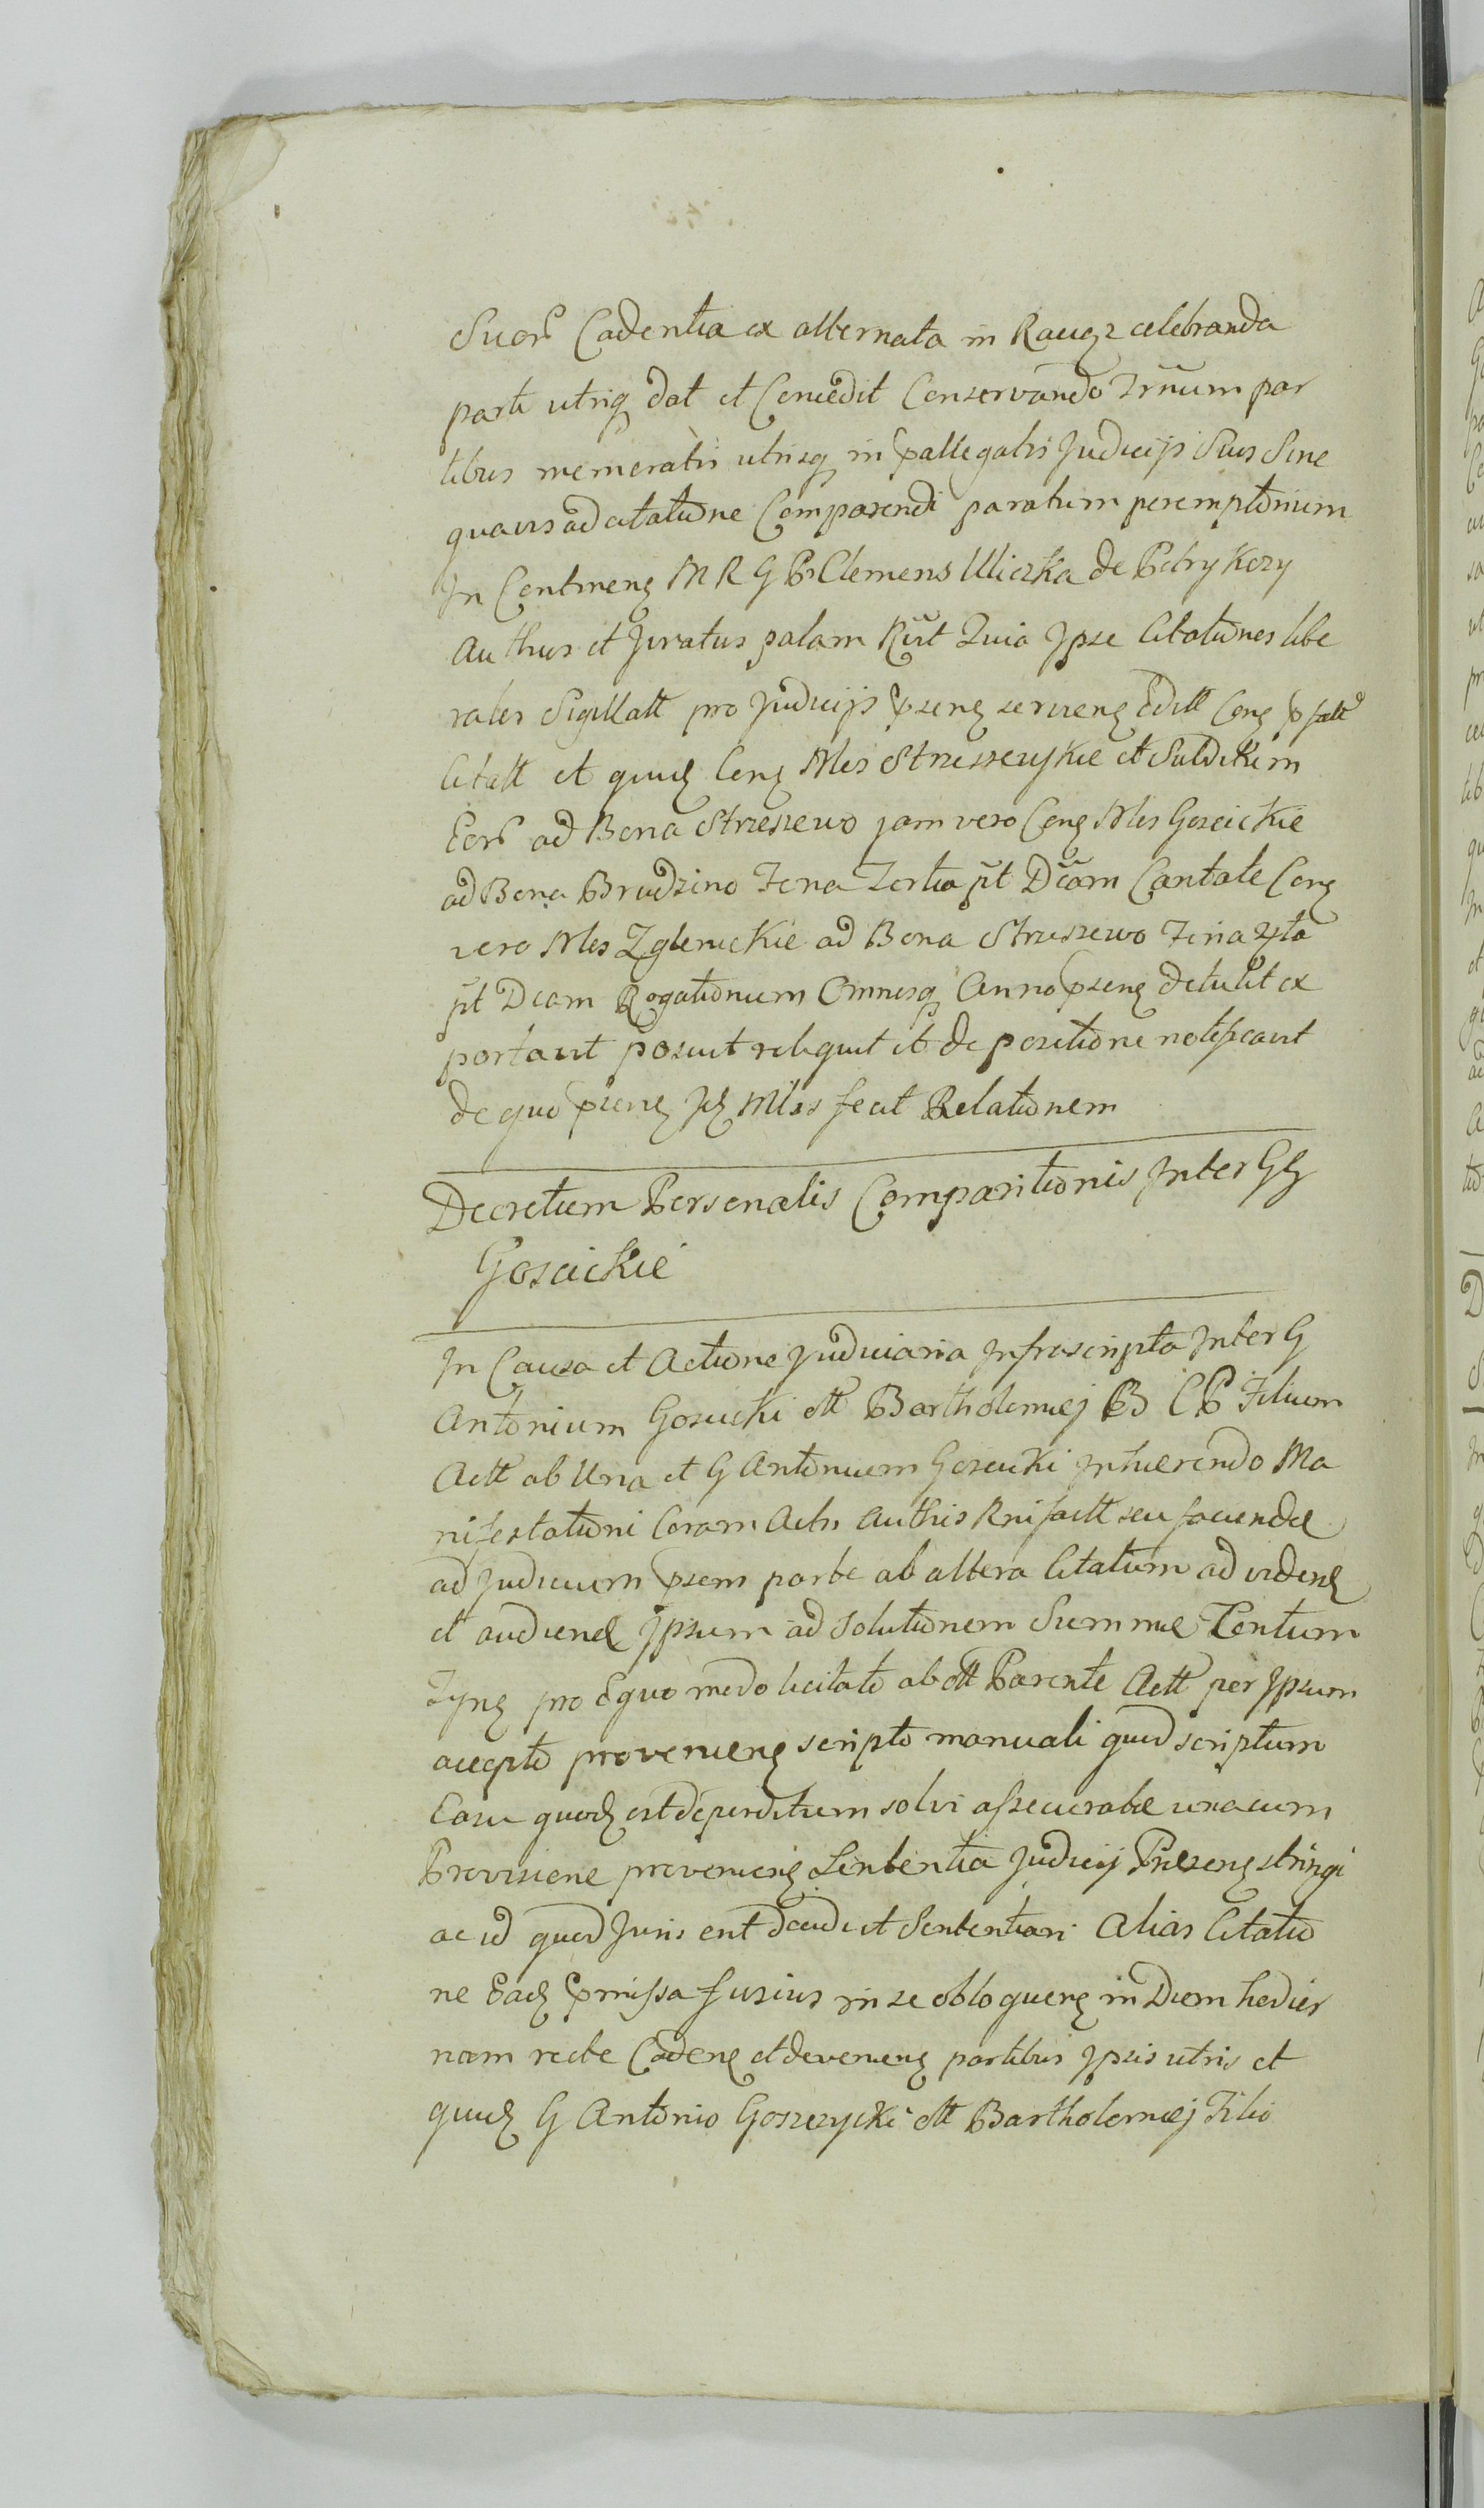 Suor Cadentia ex alternata in Raciąz celebranda
parti utriq dat et Concedit Conservando Trnum par
tibus memoratis utrisq in pallegatis Judicijs Suis Sine
quavis adcitatione Comparendi paratum peremptorium
In Continenz M R G Pr Clemens Uliczka de Petrykozy
Authus et Juratus palam Rūt Quia Ipse Citationes libe
rales Sigillatt pro Judicijs psenz servienz Editt Conz
Citatt et quidz Conz Mles Strzeszeuskie et Subditum
Eor ad Bona Strzeszewo jam vero Conz Mles Goscickie
ad Bona Brudzino Feria Tertia pt Dcam Cantate Conz
vero Mles Zglenickie ad Bona Struszewo Feria xta
pt Dcam Rogationum Omnesq Anno psenz detulit ex
portavit posuit reliquit et de positione notificavit
de quo psenz Idz Mlss fecit Relationem
Decretum Personalis Comparitionis Inter GG
Goscickie
In Causa et Actione Judiciaria Infrascripta Inter G
Antonium Goscicki ott Bartholomej B C P Filium
Actt ab Una et G Antonium Goscicki Inhærendo Ma
nifestationi Coram Actis Authis Rni factt seu faciendæ
ad Judicium psens parte ab altera Citatum ad videnđ
et audienđ Ipsum ad Solutionem Summæ Centum
Tynz pro Equo modo licitato ab ott Parente Actt per Ipsum
accepto provenienz scripto manuali quod scriptum
Casu quodz est deperditum solvi assecuratæ unacum
Provisione provenienz Sententia Judicij Præsenz stringi
ac id quod Juris erit decidi et Sententiari Alias Citatio
ne Eadz pmissa fusius in se obloquenz in Diem hodier
nam recte Cadenz et devenienz partibus Ipsis utris et
quidz G Antonio Goszczycki ott Bartholomej Filio